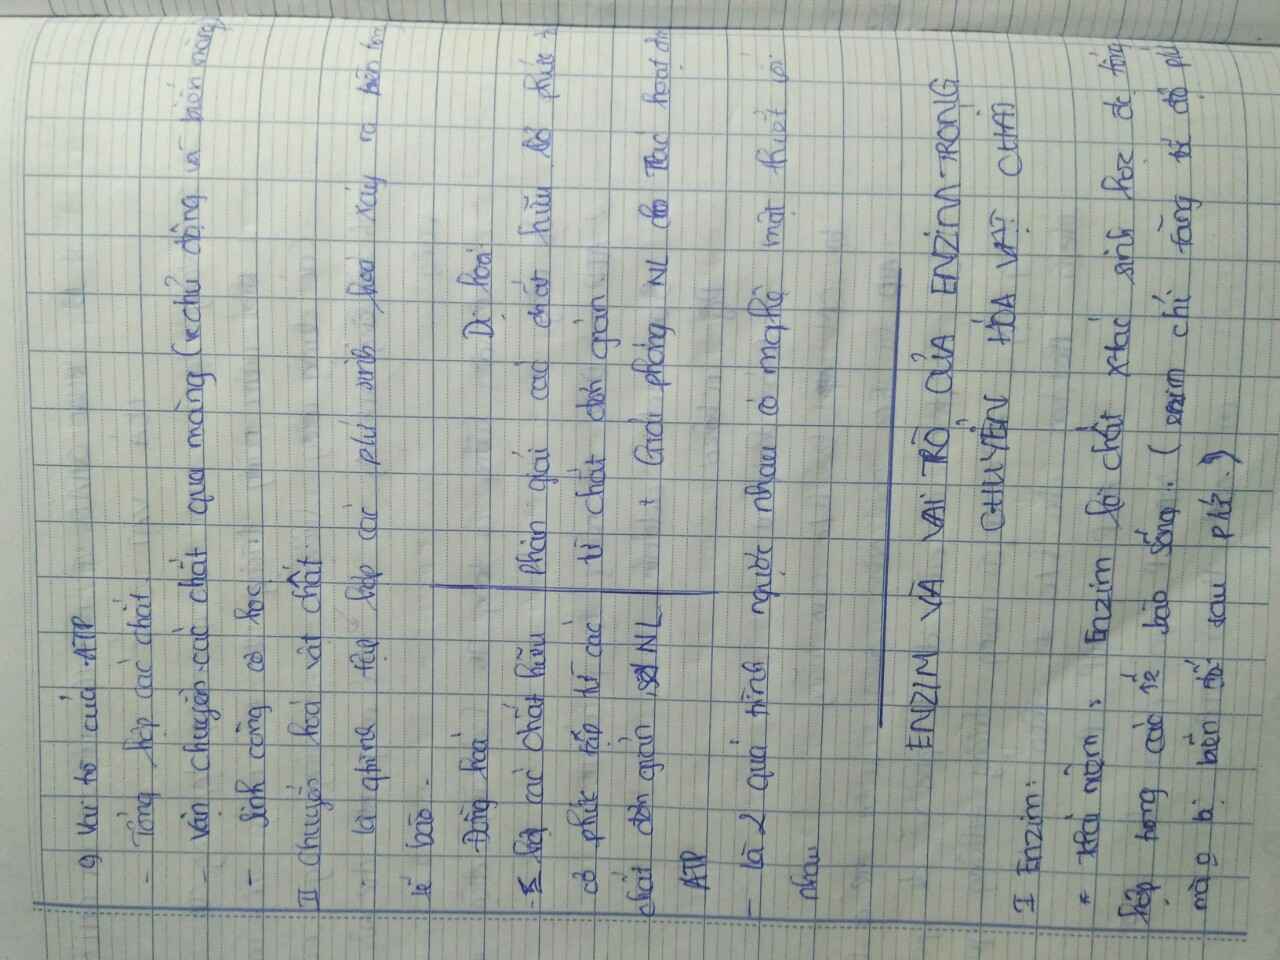 c) Vai trò của ATP
- Tổng hợp các chất.
- Vận chuyển các chất qua màng (v.chủ động và biến màng
- Sinh công cơ học.
II Chuyển hoá vật chất.
- Là qtrình tập hợp các pư sinh hoá xảy ra bên
tế bào.
Đồng hoá
Dị hoá
- Σ hợp các chất hữu
cơ phức tạp từ các
chất đơn giản, NL
ATP
Phân giải các chất hữu cơ phức
từ chất đơn giản.
+ Giải phóng NL cho các hoạt
- là 2 quá trình ngược nhau có nghĩa mật thiết với
nhau
ENZIM VÀ VAI TRÒ CỦA ENZIM TRONG
CHUYỂN HÓA VẬT CHẤT
I Enzim:
* Khái niệm: Enzim là chất xtác sinh học đc tổng
hợp trong các tế bào sống. (enzim chỉ tăng tốc độ pư
mà o bị biến đổi sau pư.)